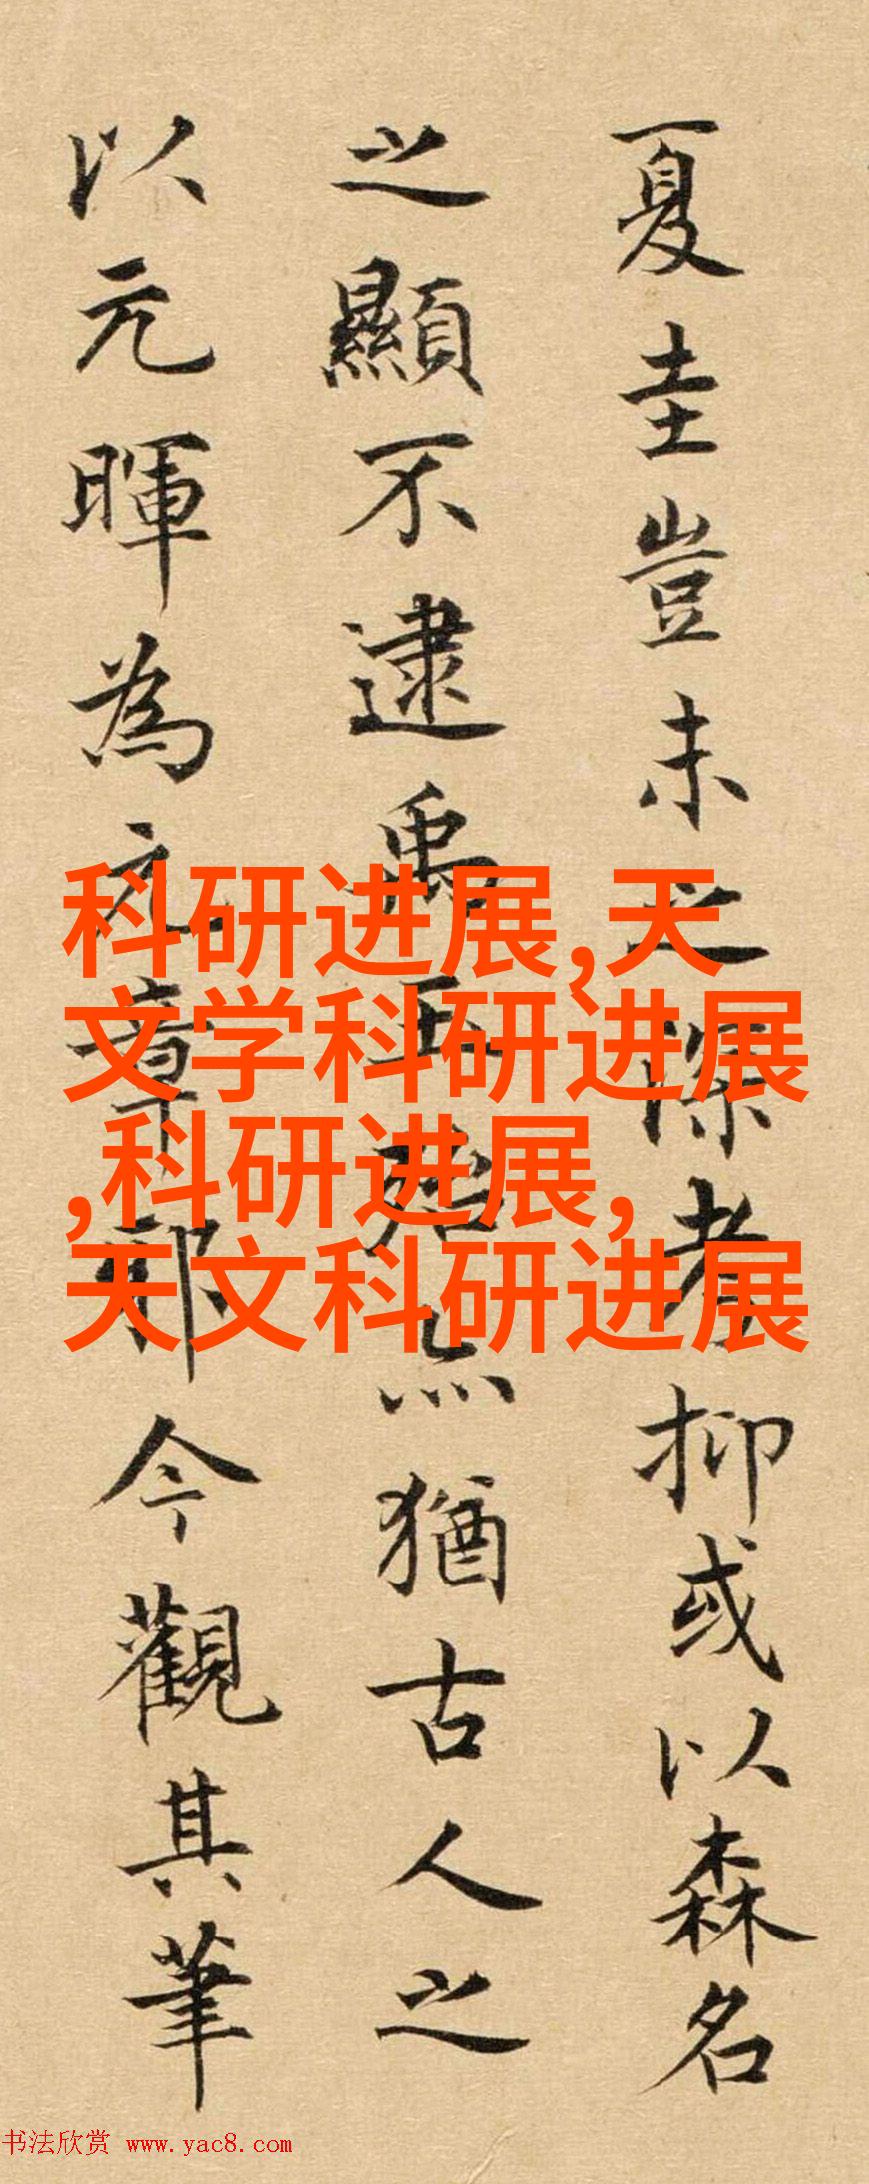 夏圭豈未之深考抑或以森名
之顯不逮禹玉殆亦猶古人之
以元暉為元章耶今觀其筆
科研进展,天
文学科研进展
,科研进展,
天文科研进展
书法欣赏 www.yac8.com